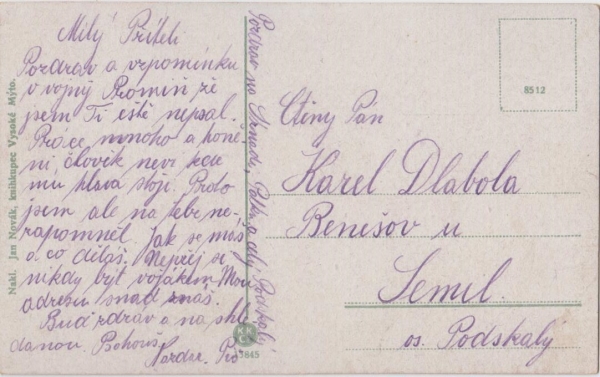 Milý Příteli
Pozdrav a vzpomínku
o vojny Promiň že
jsem Ti eště nepsal.
Práce mnoho a honě-
ní, člověk neví kde
mu hlava stojí. Proto
jsem ale na tebe ne-
zapomněl. Jak se máš
a co děláš. Nepřej si
nikdy být vojákem. Mou
adresu snad znáš.
Buď zdráv a na shle
danou. Bohouš
Nazdar.
Pozdrav na
a celý Podskalý
Nakl. Jan Novák, knihkupec Vysoké Mýto.
KK
1845
8512
Ctěný Pán
Karel Dlabola
Benešov u
Semil.
os. Podskalý